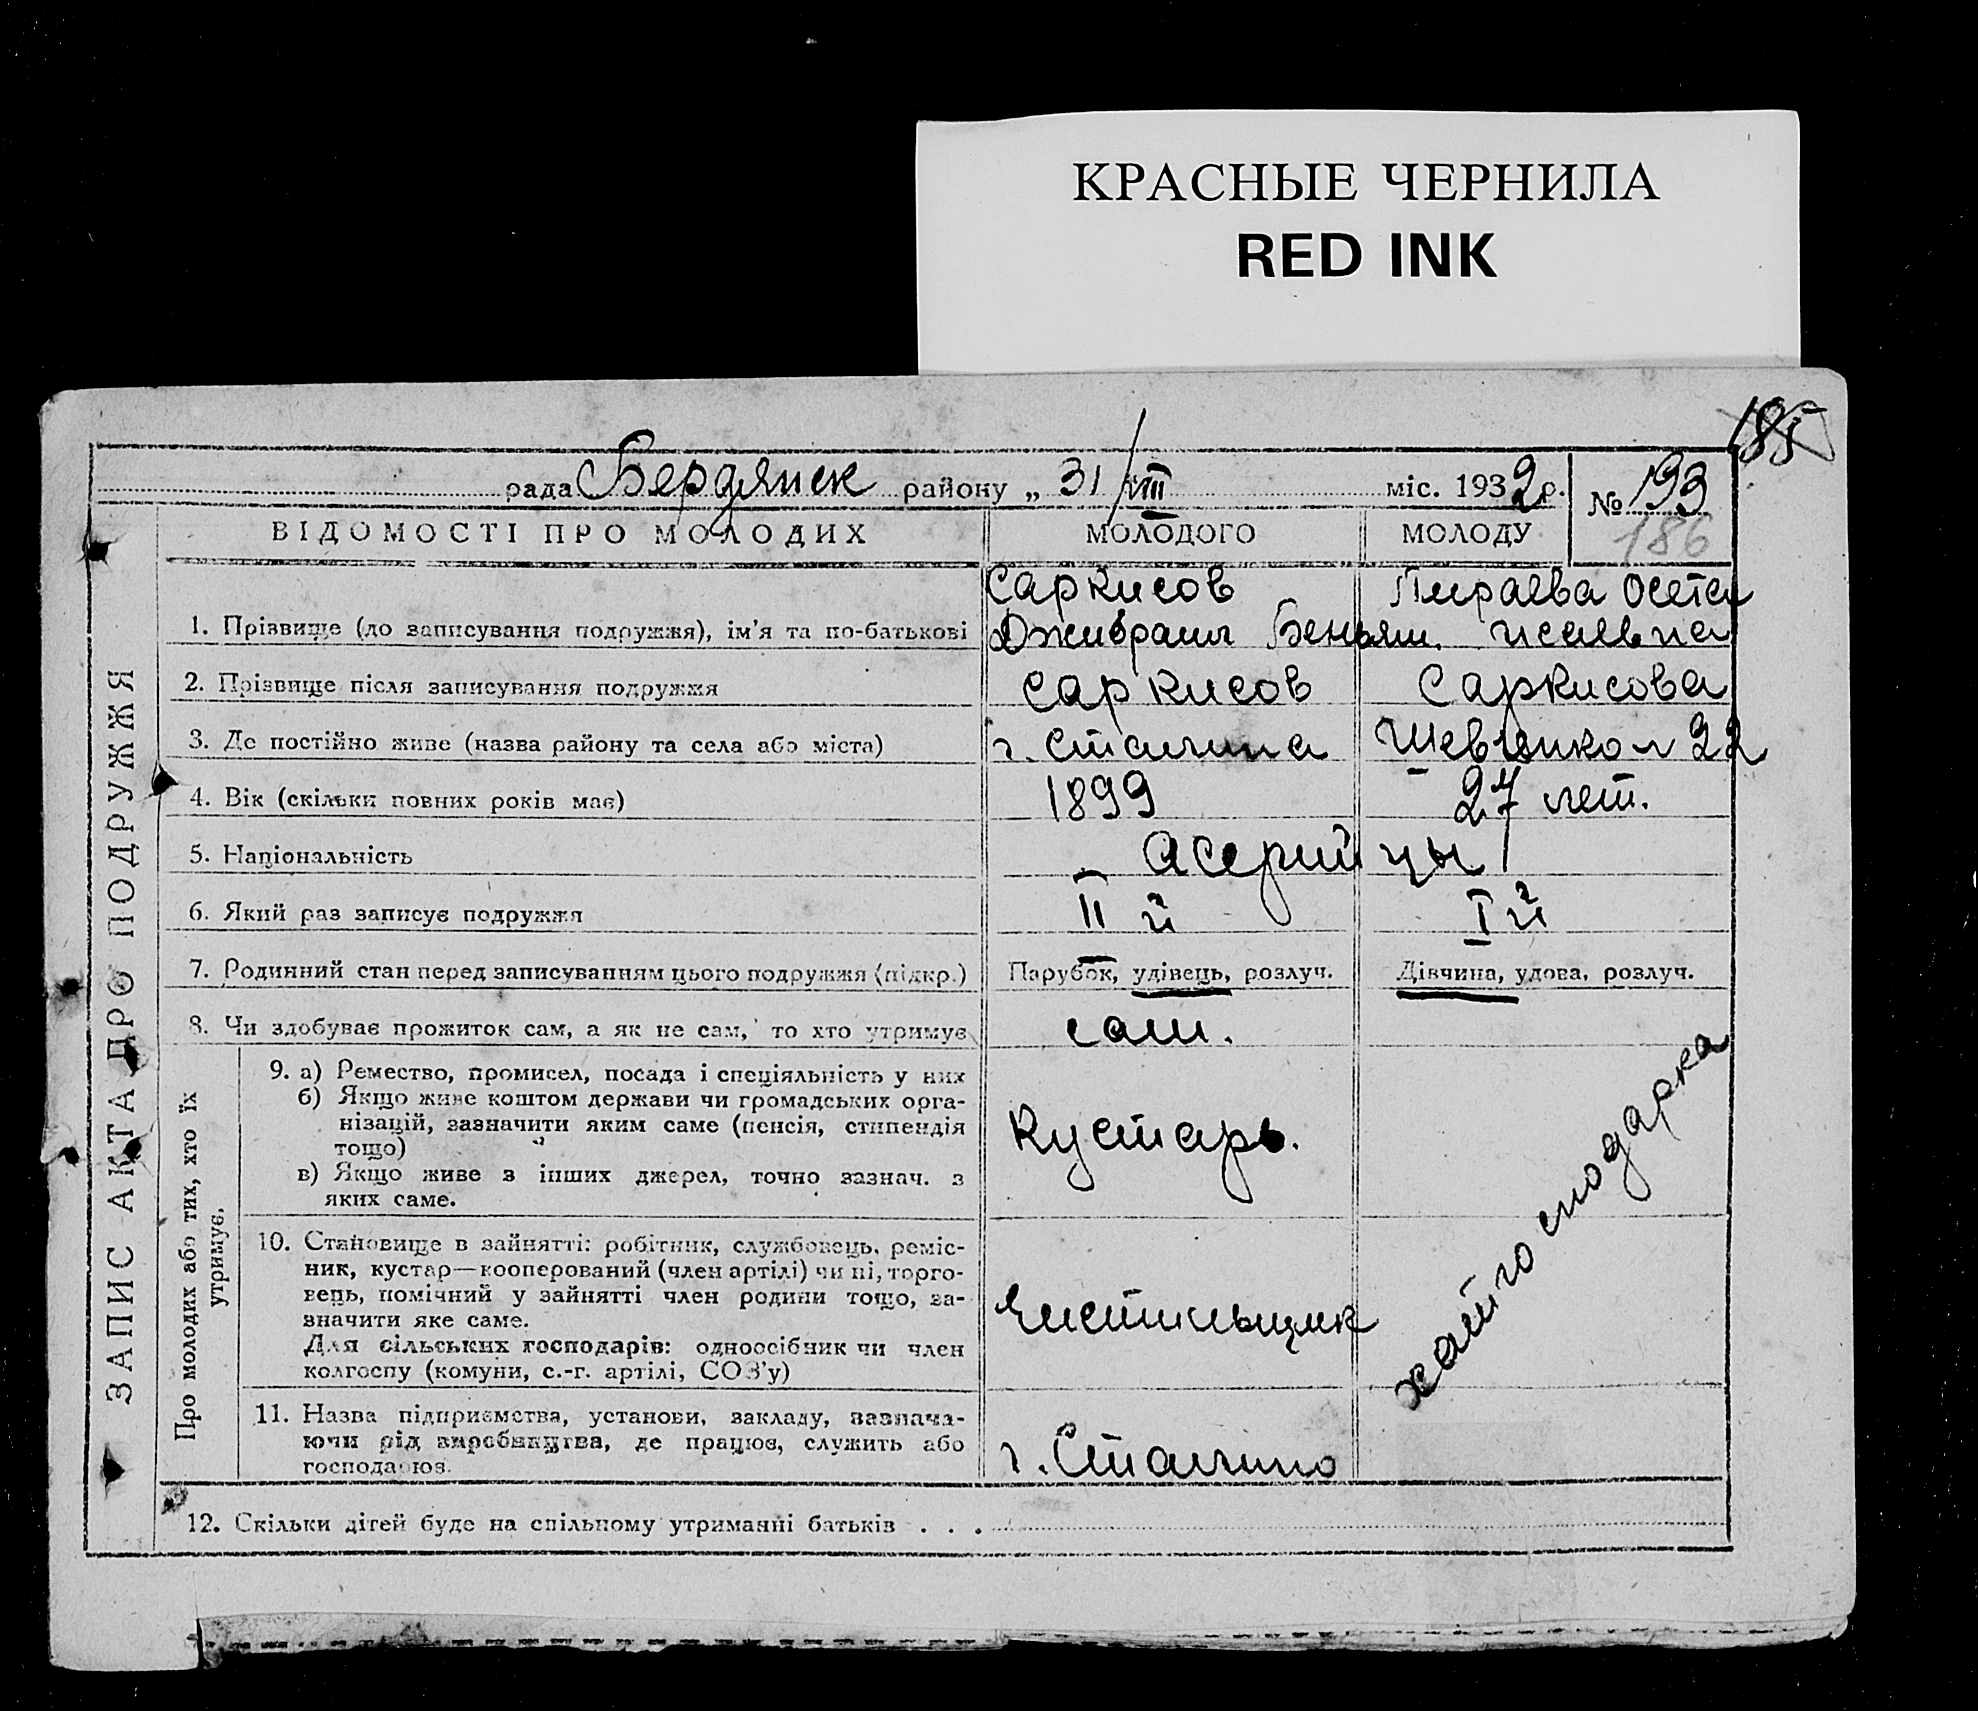 КРАСНЫЕ ЧЕРНИЛА
RED INK
185
рада Бердянск району „ 31/VIII міс. 1932 р. № 193
186
ВІДОМОСТІ ПРО МОЛОДИХ МОЛОДОГО МОЛОДУ
ЗАПИС АКТА ПРО ПОДРУЖЖЯ
Саркисов Пираева Осета
1. Прізвище (до записування подружжя), ім’я та по-батькові Джибраил Беньям. исаевна
2. Прізвище після записування подружжя Саркисов Саркисова
3. Де постійно живе (назва району та села або міста) г. Сталина Шевченко 22
4. Вік (скільки повних років має) 1899 27 лет.
5. Національність асерийцы
6. Який раз записує подружжя II й I й
7. Родинний стан перед записуванням цього подружжя (підкр.) Парубок, удівець, розлуч. Дівчина, удова, розлуч.
8. Чи здобуває прожиток сам, а як не сам, то хто утримує сам.
Про молодих або тих, хто їх
утримує.
9. а) Ремество, промисел, посада і спеціяльність у них
б) Якщо живе коштом держави чи громадських орга-
нізацій, зазначити яким саме (пенсія, стипендія
тощо)
в) Якщо живе з інших джерел, точно зазнач. з
яких саме.
Кустарь.
хатгосподарка
10. Становище в зайнятті: робітник, службовець, реміс-
ник, кустар—кооперований (член артілі) чи ні, торго-
вець, помічний у зайнятті член родини тощо, за-
значити яке саме.
Для сільських господарів: одноосібник чи член
колгоспу (комуни, с.-г. артілі, СОЗ’у)
Чистильщик
11. Назва підприємства, установи, закладу, зазнача-
ючи рід виробництва, де працює, служить або
господарює.
г. Сталино
12. Скільки дітей буде на спільному утриманні батьків . . .